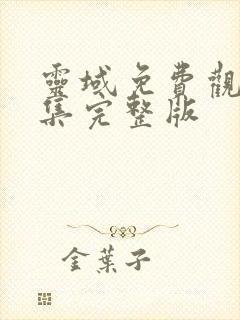 靈域免費觀
集完整版
金葉子